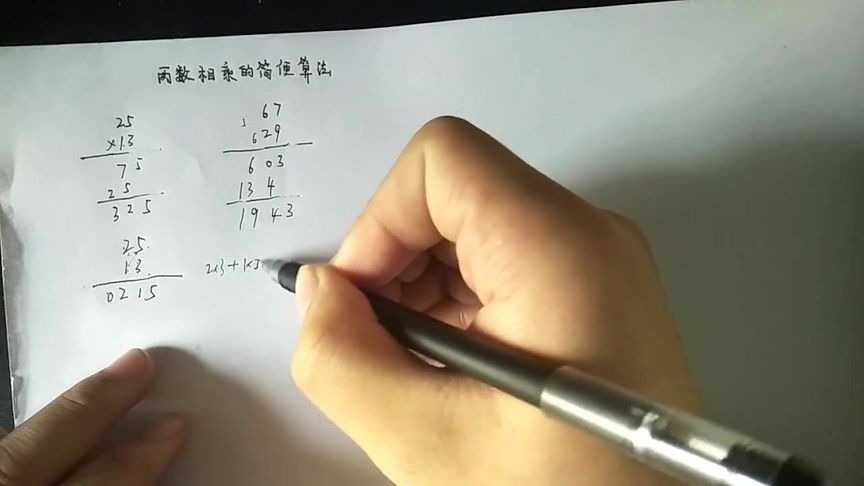 两数相乘的简便算法
25
×13
75
25
325
67
629
603
134
1943
25
13
0215
2x3+1x5